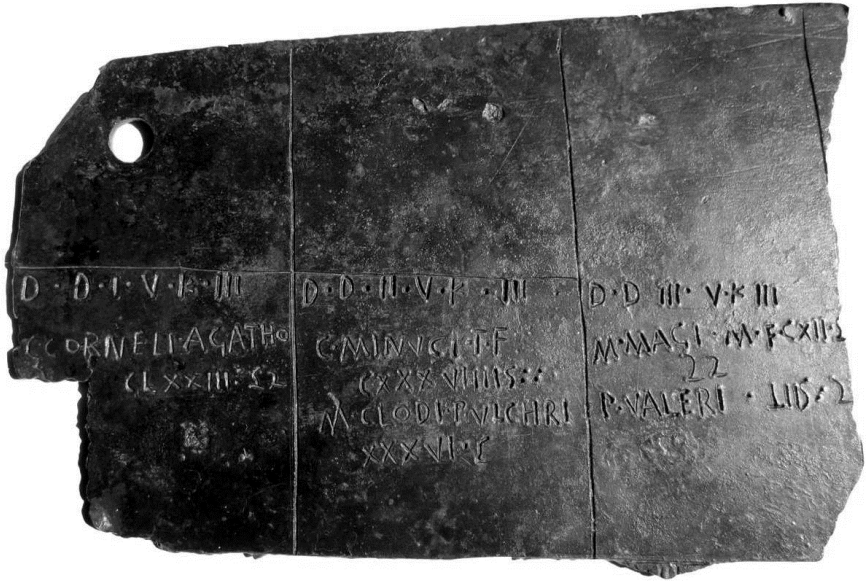 D · D · I · V · K · III
C CORNELI · AGATHO
CLXXIII
D · D · II · V · K · III
C · MINVCI · T · F
CXXXVIIIIS
M · CLODI · PVLCHRI
XXXVI ·
D · D III · V · K III
M · MAGI · M · F · CXII ·
P · VALERI ·